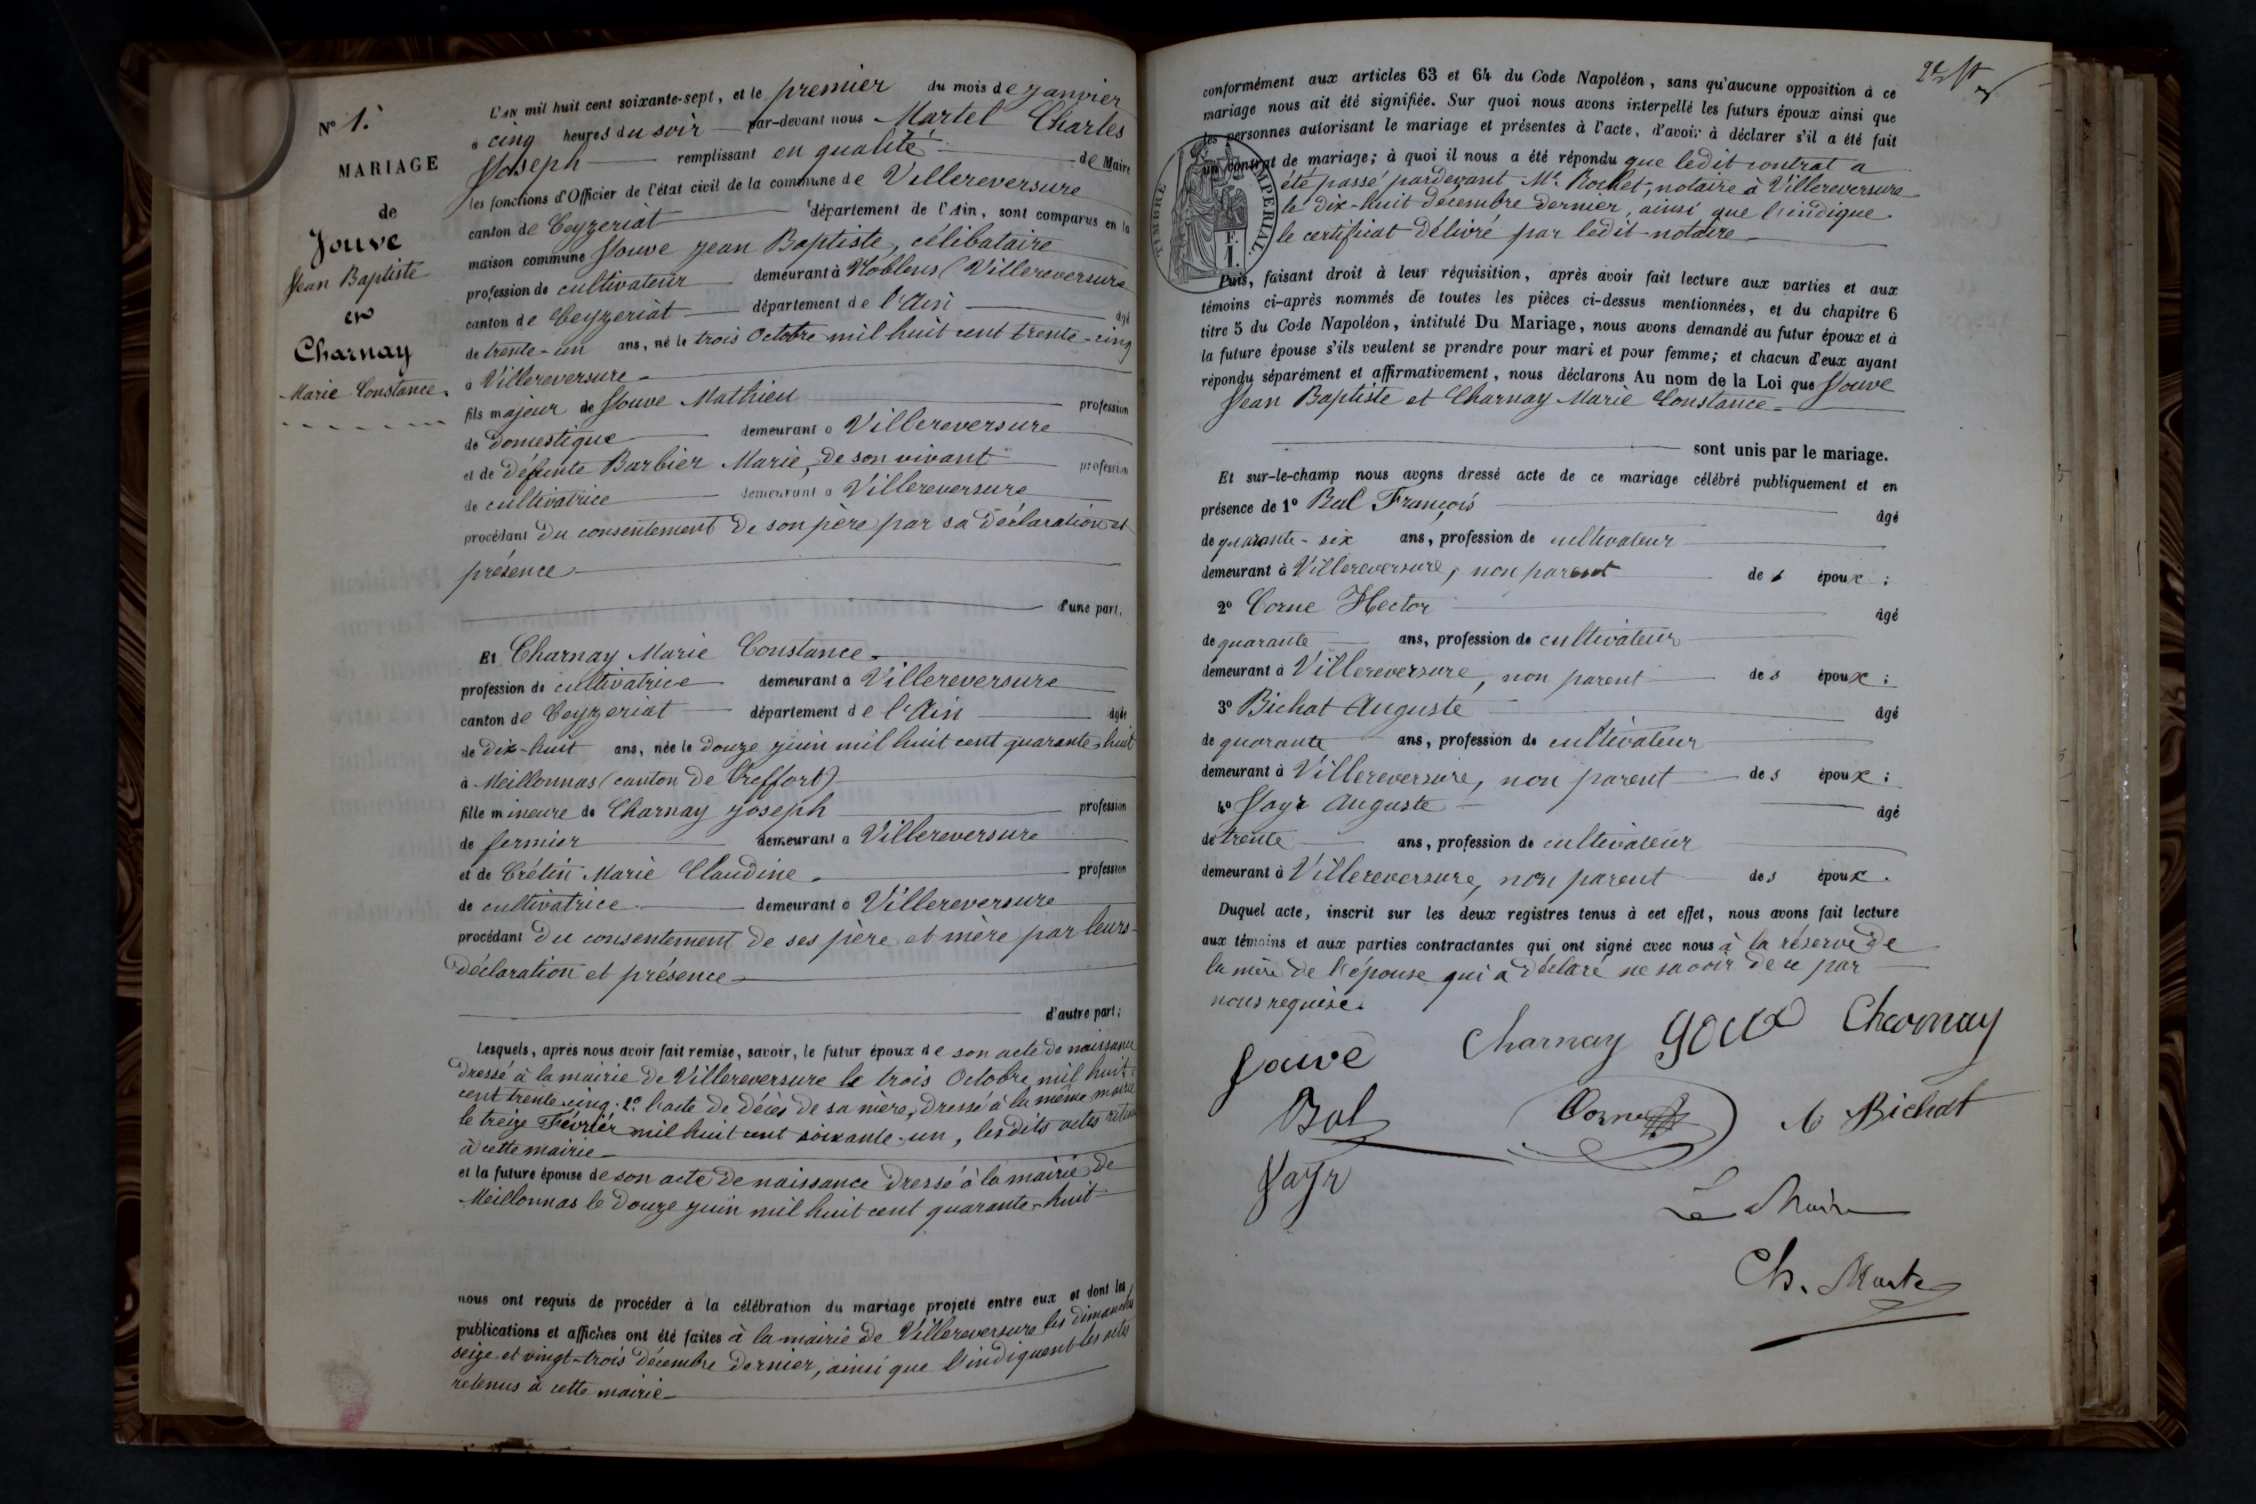 N° 1.
MARIAGE
de
Jouve
Jean Baptiste
et
Charnay
Marie Constance.
L'AN mil huit cent soixante-sept, et le premier du mois de janvier
à cinq heures du soir par-devant nous Martel Charles
Joseph remplissant en qualité de Maire
les fonctions d'Officier de l'état civil de la commune de Villereversure
canton de Ceyzeriat département de l'Ain, sont comparus en la
maison commune Jouve Jean Baptiste, célibataire
profession de cultivateur demeurant à Noblens (Villereversure
canton de Ceyzeriat département de l'Ain âgé
de trente-un ans, né le trois Octobre mil huit cent trente-cinq
à Villereversure
fils majeur de Jouve Mathieu profession
de domestique demeurant à Villereversure
et de défunte Barbier Marie, de son vivant profession
de cultivatrice demeurant à Villereversure
procédant du consentement de son père par sa déclaration et
présence
d'une part.
Et Charnay Marie Constance
profession de cultivatrice demeurant à Villereversure
canton de Ceyzeriat département de l'Ain âgée
de dix-huit ans, née le douze juin mil huit cent quarante-huit
à Meillonnas (canton de Treffort)
fille mineure de Charnay Joseph profession
de fermier demeurant à Villereversure
et de Crétin Marie Claudine profession
de cultivatrice demeurant à Villereversure
procédant du consentement de ses père et mère par leurs
déclaration et présence
d'autre part;
Lesquels, après nous avoir fait remise, savoir, le futur époux de son acte de naissance
dressé à la mairie de Villereversure le trois Octobre mil huit
cent trente-cinq. 2° l'acte de décès de sa mère, dressé à la même mairie
le treize Février mil huit cent soixante-un, les dits actes
à cette mairie
et la future épouse de son acte de naissance dressé à la mairie de
Meillonnas le douze juin mil huit cent quarante-huit
nous ont requis de procéder à la célébration du mariage projeté entre eux et dont les
publications et affiches ont été faites à la mairie de Villereversure les dimanches
seize et vingt-trois décembre dernier, ainsi que l'indiquent les actes
retenus à cette mairie
conformément aux articles 63 et 64 du Code Napoléon, sans qu'aucune opposition à ce
mariage nous ait été signifiée. Sur quoi nous avons interpellé les futurs époux ainsi que
les personnes autorisant le mariage et présentes à l'acte, d'avoir à déclarer s'il a été fait
un contrat de mariage; à quoi il nous a été répondu que ledit contrat a
été passé pardevant Me. Rochet, notaire à Villereversure
le dix-huit décembre dernier, ainsi que l'indique
le certificat délivré par ledit notaire
TIMBRE IMPERIAL.
F.
1.
Puis, faisant droit à leur réquisition, après avoir fait lecture aux parties et aux
témoins ci-après nommés de toutes les pièces ci-dessus mentionnées, et du chapitre 6
titre 5 du Code Napoléon, intitulé Du Mariage, nous avons demandé au futur époux et à
la future épouse s'ils veulent se prendre pour mari et pour femme; et chacun d'eux ayant
répondu séparément et affirmativement, nous déclarons Au nom de la Loi que Jouve
Jean Baptiste et Charnay Marie Constance
sont unis par le mariage.
Et sur-le-champ nous avons dressé acte de ce mariage célébré publiquement et en
présence de 1° Bal François âgé
de quarante-six ans, profession de cultivateur
demeurant à Villereversure, non parent des époux;
2° Corne Hector âgé
de quarante ans, profession de cultivateur
demeurant à Villereversure, non parent des époux;
3° Bichat Auguste âgé
de quarante ans, profession de cultivateur
demeurant à Villereversure, non parent des époux;
4° Jayr Auguste âgé
de trente ans, profession de cultivateur
demeurant à Villereversure, non parent des époux.
Duquel acte, inscrit sur les deux registres tenus à cet effet, nous avons fait lecture
aux témoins et aux parties contractantes qui ont signé avec nous à la réserve de
la mère de l'épouse qui a déclaré ne savoir de ce par
nous requise.
Jouve Charnay Charnay
Bal Corne A Bichat
Jayr
Le Maire
Ch. Martel